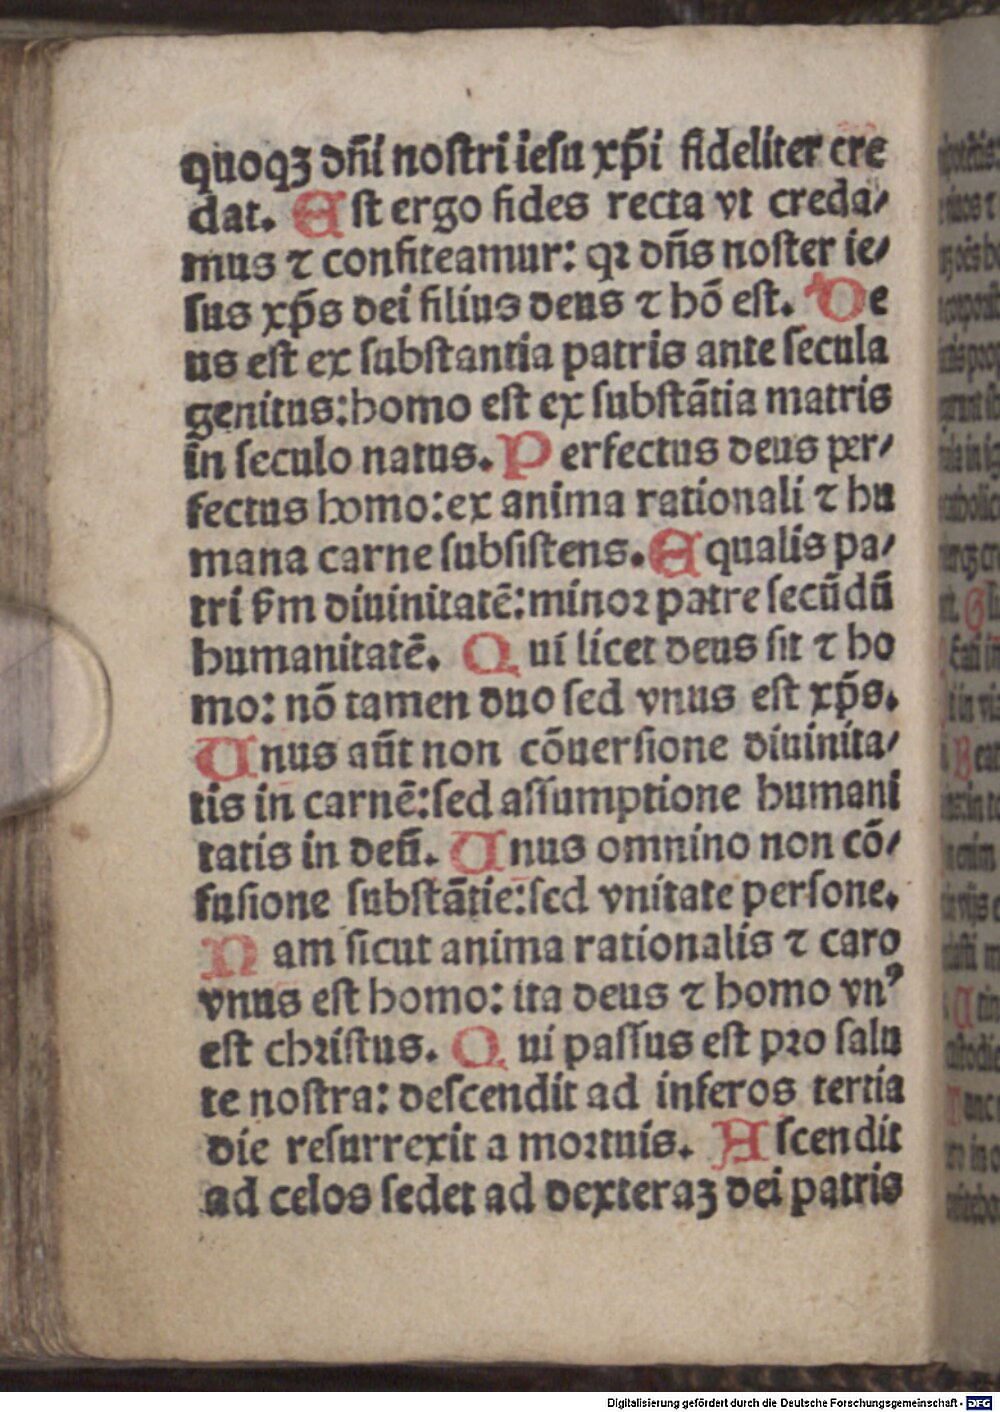 quoqꝫ dn̄i nostri iesu xp̄i fideliter cre
dat. Est ergo fides recta vt creda⸗
mus ⁊ confiteamur: qꝛ dn̄s noster ie⸗
sus xp̄s dei filius deus ⁊ hō est. De
us est ex substantia patris ante secula
genitus: homo est ex substātia matris
in seculo natus. Perfectus deus per⸗
fectus homo: ex anima rationali ⁊ hu
mana carne subsistens. Equalis pa⸗
tri ẜm diuinitatē: minor patre secūdū
humanitatē. Qui licet deus sit ⁊ ho
mo: nō tamen duo sed vnus est xp̄s.
Unus aūt non cōuersione diuinita⸗
tis in carnē: sed assumptione humani
tatis in deū. Unus omnino non cō⸗
fusione substātie: sed vnitate persone.
Nam sicut anima rationalis ⁊ caro
vnus est homo: ita deus ⁊ homo vnꝰ
est christus. Qui passus est pro salu
te nostra: descendit ad inferos tertia
die resurrexit a mortuis. Ascendit
ad celos sedet ad dexteraꝫ dei patris
Digitalisierung gefördert durch die Deutsche Forschungsgemeinschaft - DFG